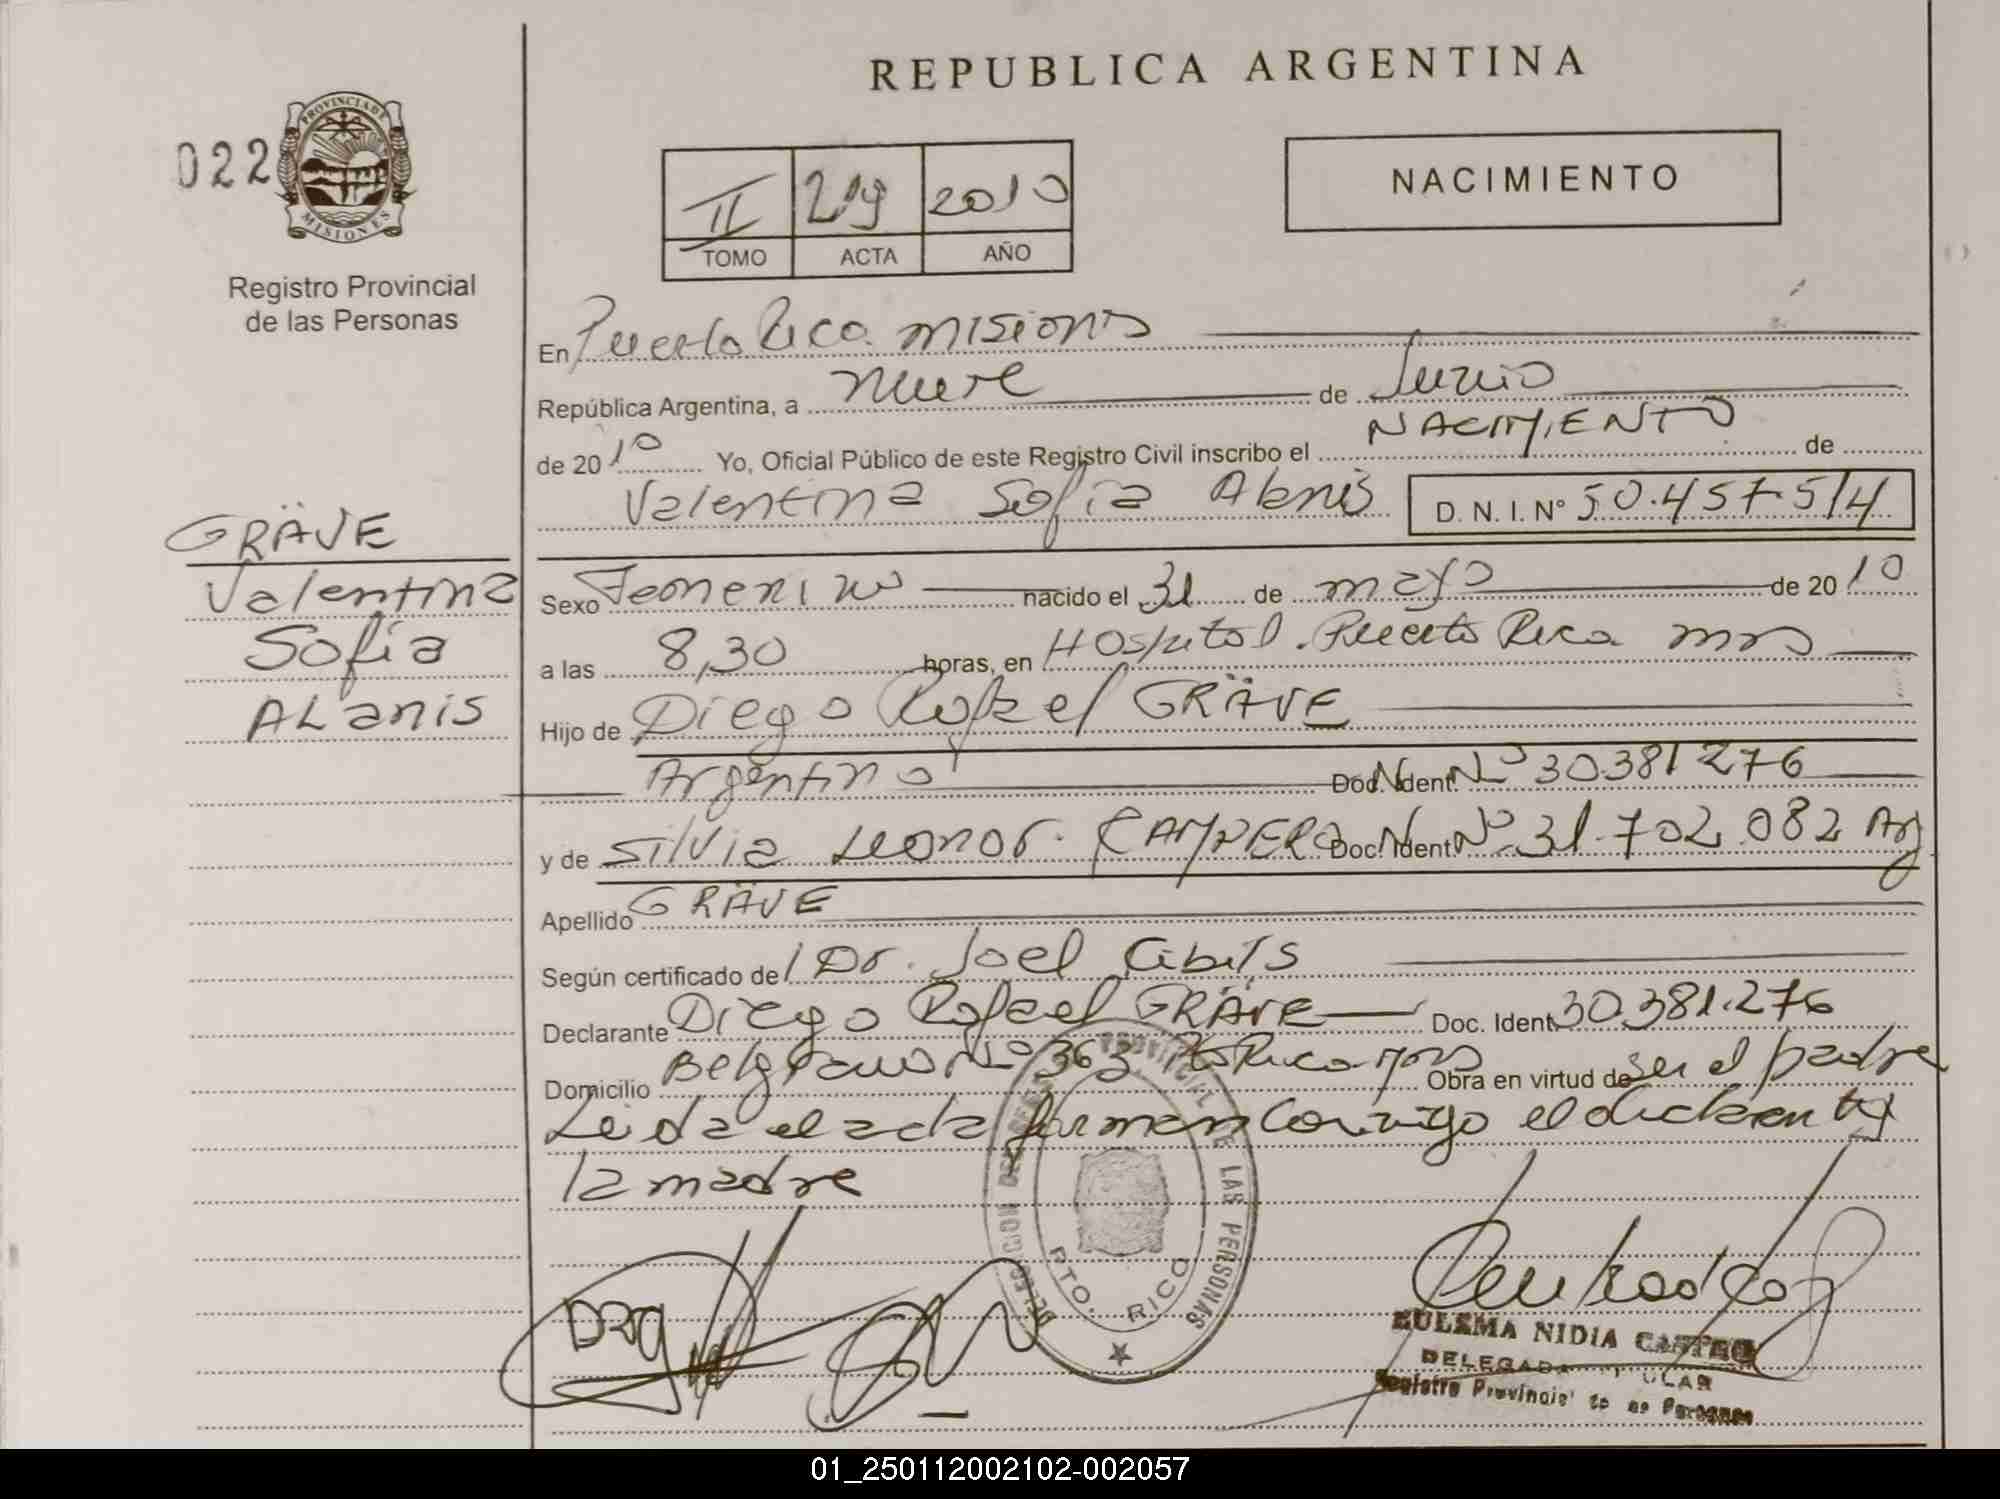 REPUBLICA ARGENTINA
022
PROVINCIA DE
MISIONES
Registro Provincial
de las Personas
II 219 2010
TOMO ACTA AÑO
NACIMIENTO
En Puerto Rico. misiones
República Argentina, a nueve de Junio
de 2010 Yo, Oficial Público de este Registro Civil inscribo el NACIMIENTO de
Valentina Sofia Alanis D. N. I. Nº 50.457.514
GRÄVE
Valentina
Sofia
ALanis
Sexo Femenino nacido el 31 de mayo de 2010
a las 8,30 horas, en Hospital. Puerto Rico mns
Hijo de Diego Rafael GRÄVE
Argentino Doc. Ident. Nº 30381276
y de Silvia Leonor. RAMPERO Doc. Ident. Nº 31.702.082 Arg
Apellido GRÄVE
Según certificado de Dr. Joel Cibils
Declarante Diego Rafael GRÄVE Doc. Ident 30.381.276
Domicilio Belgrano Nº 363 Pto Rico mns Obra en virtud de ser el padre
Leida el acta firman Conmigo el declarante y
la madre
DELEGACION DEL REGISTRO PROVINCIAL DE LAS PERSONAS
PTO. RICO
ZULEMA NIDIA CASTRO
DELEGADA TITULAR
Registro Provincial de las Personas
01_250112002102-002057